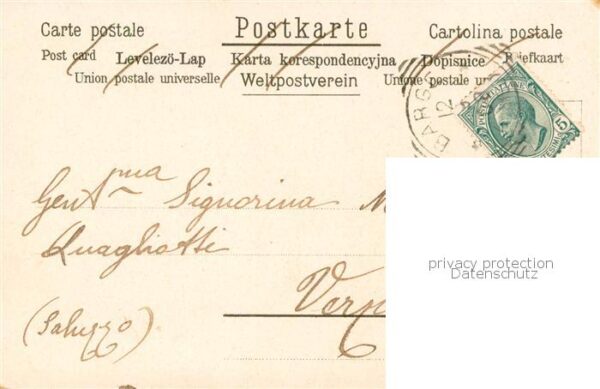 Carte postale Postkarte Cartolina postale
Post card Levelező-Lap Karta korespondencyjna Dopisnice Briefkaart
Union postale universelle Weltpostverein Unione postale
BARGE
12
POSTE ITALIANE
5
Gent.ma Signorina M
Quagliotti
Vern
(Saluzzo)
privacy protection
Datenschutz